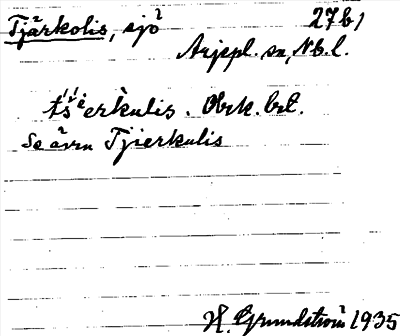 Tjärkolis, sjö 27b1
Arjepl. sn, Nb. l.
tš́ierkulis. Obek. bet.
Se även Tjierkulis
H. Grundström 1935